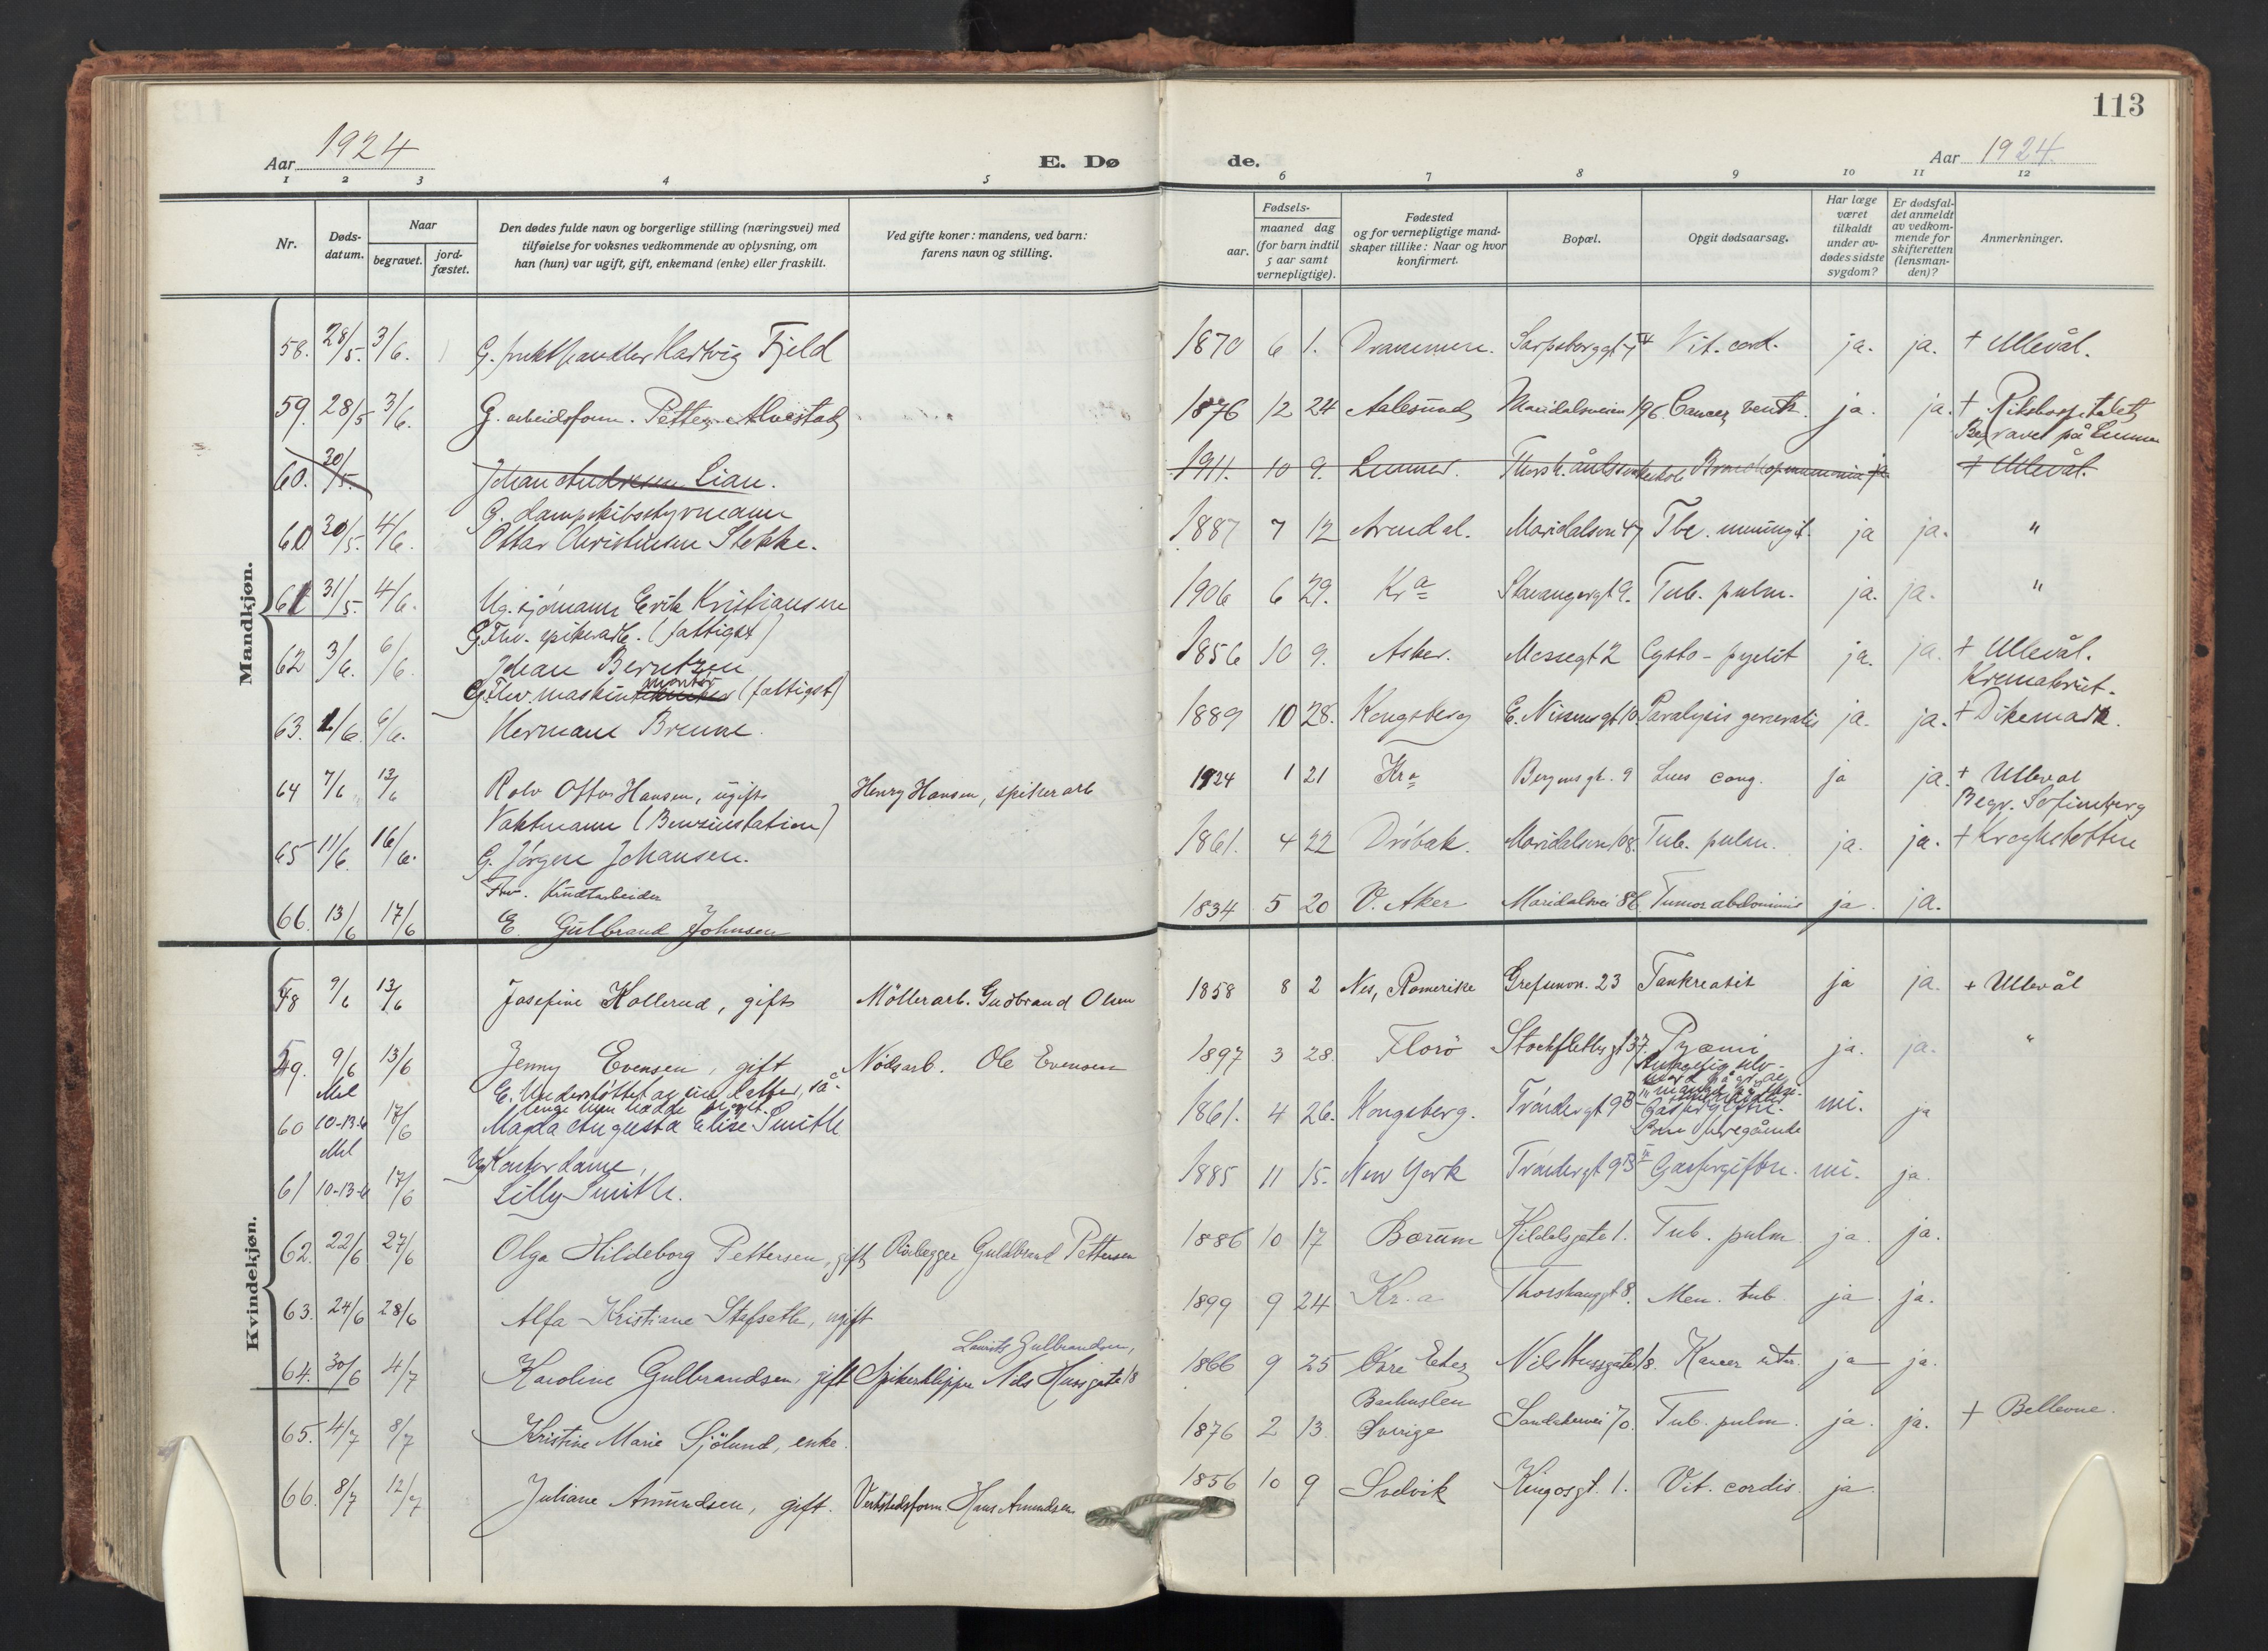 113
Aar 1924
E. Dø
de.
Aar 1924
1 2 3 4 5
6 7 8 9 10 11 12
Nr.
Døds-
datum.
Naar
begravet.
jord-
fæstet.
Den dødes fulde navn og borgerlige stilling (næringsvei) med
tilføielse for voksnes vedkommende av oplysning, om
han (hun) var ugift, gift, enkemand (enke) eller fraskilt.
Ved gifte koner: mandens, ved barn:
farens navn og stilling.
Fødsels-
aar.
maaned dag
(for barn indtil
5 aar samt
vernepligtige).
Fødested
og for vernepligtige mand-
skaper tillike: Naar og hvor
konfirmert.
Bopæl.
Opgit dødsaarsag.
Har læge
været
tilkaldt
under av-
dødes sidste
sygdom?
Er dødsfal-
det anmeldt
av vedkom-
mende for
skifteretten
(lensman-
den)?
Anmerkninger.
Mandkjøn.
58. 28/5. 3/6. G. frukthandler Hartvig Fjeld 1870 6 1. Drammen. Sarpsborggt 4 Vit. cord. ja. ja. + Ullevål.
59. 28/5 3/6. G. arbeidsform. Petter Alvestad 1876 12 24 Aalesund Maridalsveien 196. Cancer ventr. ja. ja. + Rikshospitalet
Begravet på
60. 30/5. Johan Andresen Lian. 1911. 10 9. Bronchopneumonia ja + Ullevål.
G. dampskibsstyrmann
60 30/5. 4/6. Ottar Christensen Stekke. 1887 7 12 Arendal. Maridalsvn 47 Tbc. meningit. ja ja. "
61 31/5. 4/6. Ug. sjömann Erik Kristiansen 1906 6 29. Kra Stavangergt 9. Tub. pulm. ja. ja. "
G. Fhv. spikerarb. (fattigst)
62 3/6. 6/6. Johan Berntzen 1856 10 9. Asker. Mossegt 2 Cysto-pyelit ja. ja. + Ullevål.
Krematoriet.
G. Fhv. maskin montör (fattigst)
63. 1/6 6/6. Hermann Brenne. 1889 10 28. Kongsberg E. Nissensgt 10. Paralysis generalis ja. ja. + Dikemark.
64 7/6 13/6 Rolv Ottar Hansen, ugift Henry Hansen, spikerarb 1924 1 21 Kra Bergensgt. 9 Lues cong. ja ja. + Ulleval
Begr. Sofienberg
Vaktmann (Bensinstation)
65 11/6. 16/6. G. Jörgen Johansen. 1861. 4 22 Dröbak. Maridalsvn 108. Tub. pulm. ja. ja. + Krogstötten
Fhv. Krudtarbeider
66. 13/6 17/6 E. Gulbrand Johnsen 1834 5 20 V. Aker Maridalsvei 86. Tumor abdominis ja. ja.
Kvindekjøn.
58 9/6 13/6 Josefine Kollerud, gift Möllerarb. Gudbrand Olsen 1858 8 2 Nes, Romerike Grefsenvn. 23 Pankreatit ja ja. + Ullevål
59. 9/6 13/6 Jenny Evensen, gift Nödsarb. Ole Evensen 1897 3 28. Florö Stockflethsgt 37. Pyæmi ja. ja. "
Mel E. Understöttet av sin datter, så
lenge hun hadde
60 10-13-6 17/6 Magda Augusta Elise Smith 1861. 4 26. Kongsberg. Tröndergt 9B Gasforgiftn. nei. ja
Mel Ug Kontordame, Som foregående
61 10-13-6 17/6 Lilly Smith. 1885 11 15. New York Tröndergt 9B Gasforgiftn. nei. ja.
62. 22/6 27/6 Olga Hildeborg Pettersen, gift Rörlegger Guldbrand Pettersen 1886 10 17 Bærum Kildalsgate 1. Tub. pulm ja. ja.
63. 24/6 28/6 Alfa Kristiane Stafseth, ugift 1899 9 24 Kr.a Thorshauggt 8. Men. tub ja ja.
Laurits Gulbrandsen,
64. 30/6 4/7 Karoline Gulbrandsen, gift Spikerklipper Nils Huusgate 18 1866 9 25 Övre Eker Nils Huusgate 18. Kancer uter. ja ja.
65. 4/7 8/7 Kristine Marie Sjölund, enke. 1876 2 13. Baahuslen
Sverige Sandakervei 70. Tub. pulm. ja. ja. + Bellevue.
66. 8/7 12/7 Juliane Amundsen, gift. Verkstedsform. Hans Amundsen 1856 10 9 Svelvik Kingosgt. 1. Vit. cordis. ja